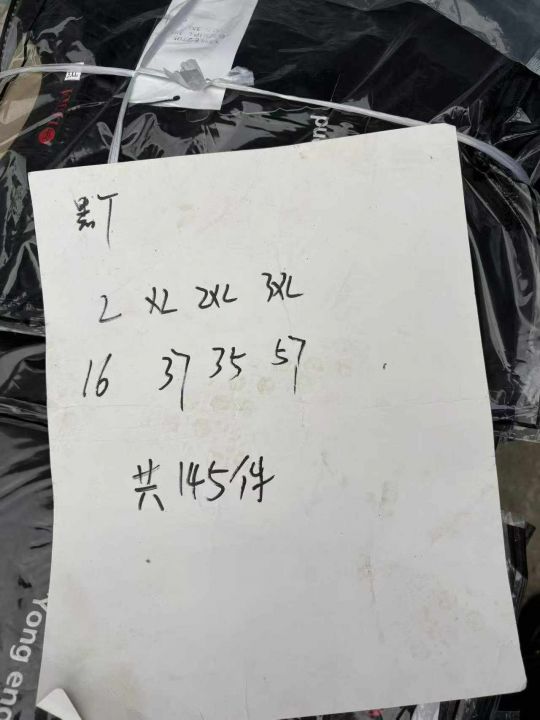 黑T
L XL 2XL 3XL
16 37 35 57
共145件
Yong